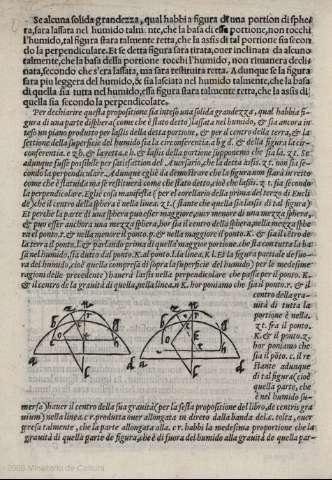 Se alcuna solida grandezza, qual habbi a figura de una portion di sphe
ra, sara lassata nel humido talmente, che la basa di essa portione, non tocchi
l'humido, tal figura stara talmente retta, che la assis di tal portione sia secon
do la perpendicolare. Et se detta figura sara tirata, ouer inclinata da alcuno
talmente, che la basa della portione tocchi l'humido, non rimanera decli
nata, secondo che s'era lassata, ma sara restituita retta. Adunque se la figura
sara piu leggera del humido, & sia lasciata nel humido talmente, che la basa
di quella sia tutta nel humido, essa figura stara talmente retta, che la assis di
quella sia secondo la perpendicolare.
Per dechiarire questa propositione sia inteso una solida grandezza, qual habbia fi-
gura di una parte di sphera (come che è stato detto) lassata nel humido, & sia ancora in
teso un piano produtto per lassis della detta portione, & per il centro della terra, & la
settione della superficie del humido sia la circonferentia .a b g d. & della figura la cir-
conferentia. e z h. & la retta .e h. & lassis della portione supponemo che sia la. z t. Se
adunque fusse possibile per satisfattion del Auersario, che la detta assis. z t. non sia se-
condo la perpendicolare. Adunque eglie da demostrare che la figura non stara in retto
come che è statuida ma se restituera come che stato detto, cioe che lassis. z t. sia secondo
la perpendicolare. Eglie cosa manifesta (per el correlario della prima del terzo di Eucli
de) che il centro della sphera è nella linea. z t. (stante che quella sia lassis di tal figura)
Et perche la parte di una sphera puol esser maggiore, ouer menore di una mezza sphera,
& puo esser anchora una mezza sphera, hor sia il centro della sphera, nella mezza sphe
ra el ponto. t. & nella menore il ponto. p. & nella maggiore il ponto. K. & sia il cētro de
la terra il ponto. l. & parlando prima di quella maggior portione, che sta con tutta la ba
sa nel humido, sia dutta dal ponto. K. al ponto. l. la linea, K l. Et la figura parziale de fuo
ra del humido, (cioè quella compresa di sopra la superficie del humido) per le medesime
ragioni delle precedente) hauera lassis nella perpendicolare che passe per il ponto. K.
& il centro de la grauità di quella, nella linea. n K. hor poniamo che sia il ponto. r. & il
centro della gra-
uità di tutta la
portione è nella
. z t. sia il ponto.
K. & il ponto z,
hor poniamo che
sia il pōto. c. il re
stante adunque
di tal figura (cioè
quella parte, che
è nel humido su-
mersa) hauer il centro della sua grauità (per la sesta propositione del libro, de centris gra
uium) nella linea c r. produtta ouer allongata in direto dalla banda del .c. tolta, ouer
presa talmente, che la parte allongata alla. c r. habbi la medesima proportione che la
grauità di quella parte de figura, che è di fuora del humido alla grauità de quella par-
2008 Ministerio de Cultura